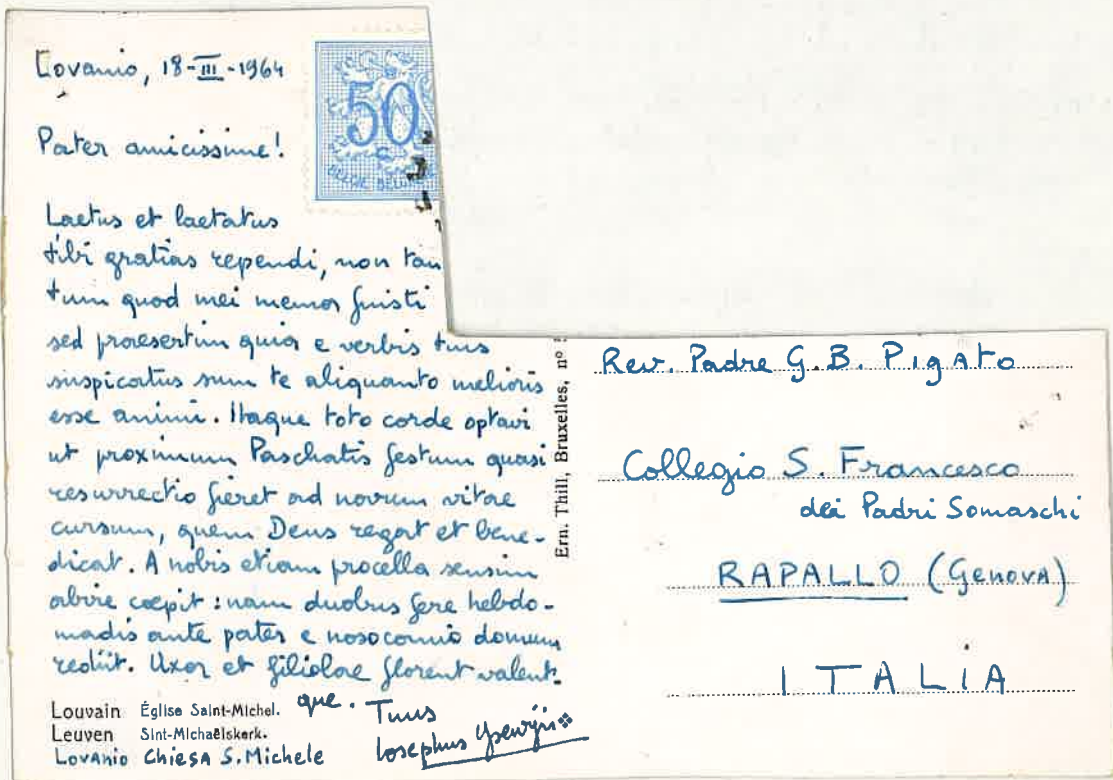 Lovanio, 18-III-1964
Pater amicissime!
50
BELGIE BELGI
Laetus et laetatus
tibi gratias rependi, non tan
tum quod mei memor fuisti
sed praesertim quia e verbis tuis
suspicatus sum te aliquanto melioris
esse animi. Itaque toto corde optavi
ut proximum Paschatis festum quasi
resurrectio fieret ad novum vitae
cursum, quem Deus regat et bene-
dicat. A nobis etiam procella sensim
abire coepit: nam duobus fere hebdo-
madis ante pater e nosocomio domum
rediit. Uxor et filiolae florent valent-
que. Tuus
Iosephus Ysewijn
Louvain Église Saint-Michel.
Leuven Sint-Michaëlskerk.
Lovanio Chiesa S. Michele
Ern. Thill, Bruxelles, nº
Rev. Padre G.B. Pigato
Collegio S. Francesco
dei Padri Somaschi
RAPALLO (Genova)
ITALIA